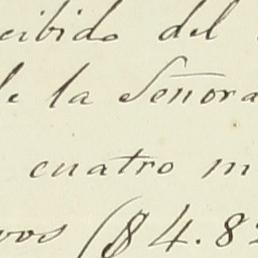 cibido del
de la Señora
cuatro m
vos ($ 4.82